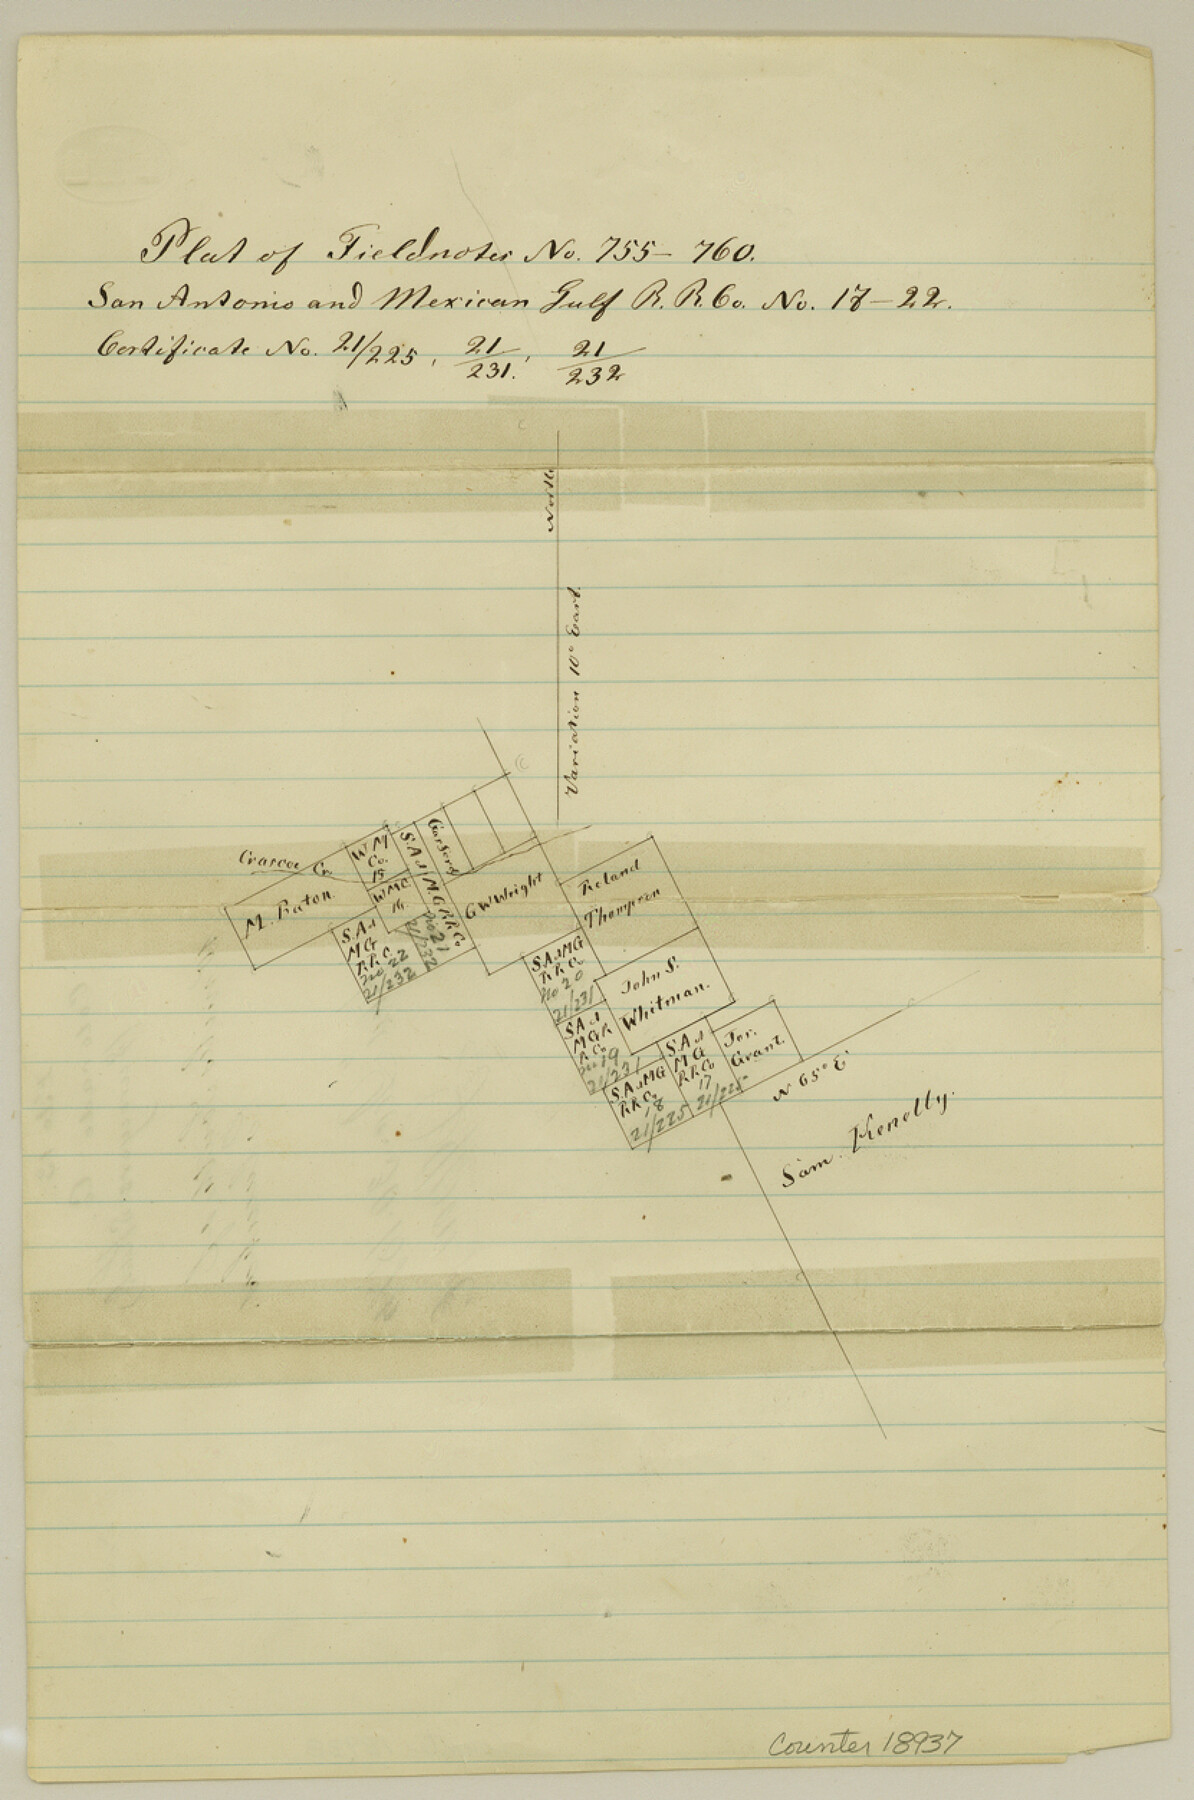 Plat of Fieldnotes No. 755–760.
San Antonio and Mexican Gulf R. R. Co. No. 17–22.
Certificate No. 21/225, 21/231, 21/232
North
Variation 10° East.
Crascoe Cr.
M. Raton
W M
Co.
15
W M C
16
S. A &
M G
R. R. C
No 22
21/232
S. A & M. G R R Co
No 21
21/232
G W Wright
Roland
Thompson
S. A & M G
R R Co
No 20
21/231
S A &
M G R
R Co
No 19
21/231
John S.
Whitman.
S. A & M G
R R Co
18
21/225
S. A &
M G
R R Co
17
21/225
Jos.
Grant.
N 65° E
Sam. Kenelly.
Counter 18937